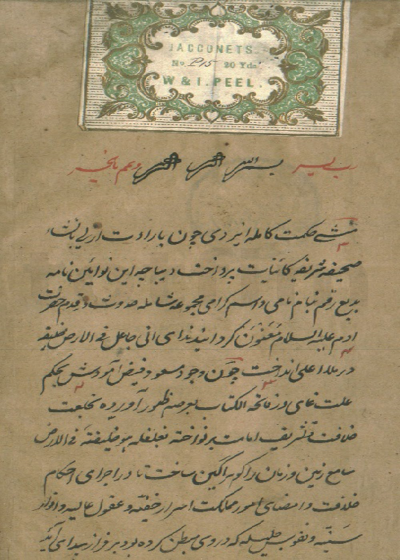 JACCONETS.
No. 215 20 Yds
W & I. PEEL.
رب یسر بسم الله الرحمن الرحیم و تمم بالخیر
منشی حکمت کامله ایزدی چون بارادت ازلی بانشاء
صحیفه شریفه کاینات پرداخت دیباچه این نوایین نامه
بدیع رقم بنام نامی و اسم گرامی مجموعه شامله حدوث و قدم حضرت
ادم علیه السلام معنون گردانید ندای انی جاعل فی الارض خلیفه
در ملا اعلی انداخت چون وجود مسعود فیض آمودش بحکم
علت غای در فاتحة الکتاب بعرصه ظهور آورده بخلعت
خلافت و تشریف امامت بر نواخته بغلغله هو خلیفته فی الارض
سامع زمین و زمان را گوهر آگین ساخت تا در اجرای احکام
خلافت و امضای امور مملکت اسرار خفیه و عقول عالیه و انوار
سنیه و نفوس که در وی مبطن کرده بود